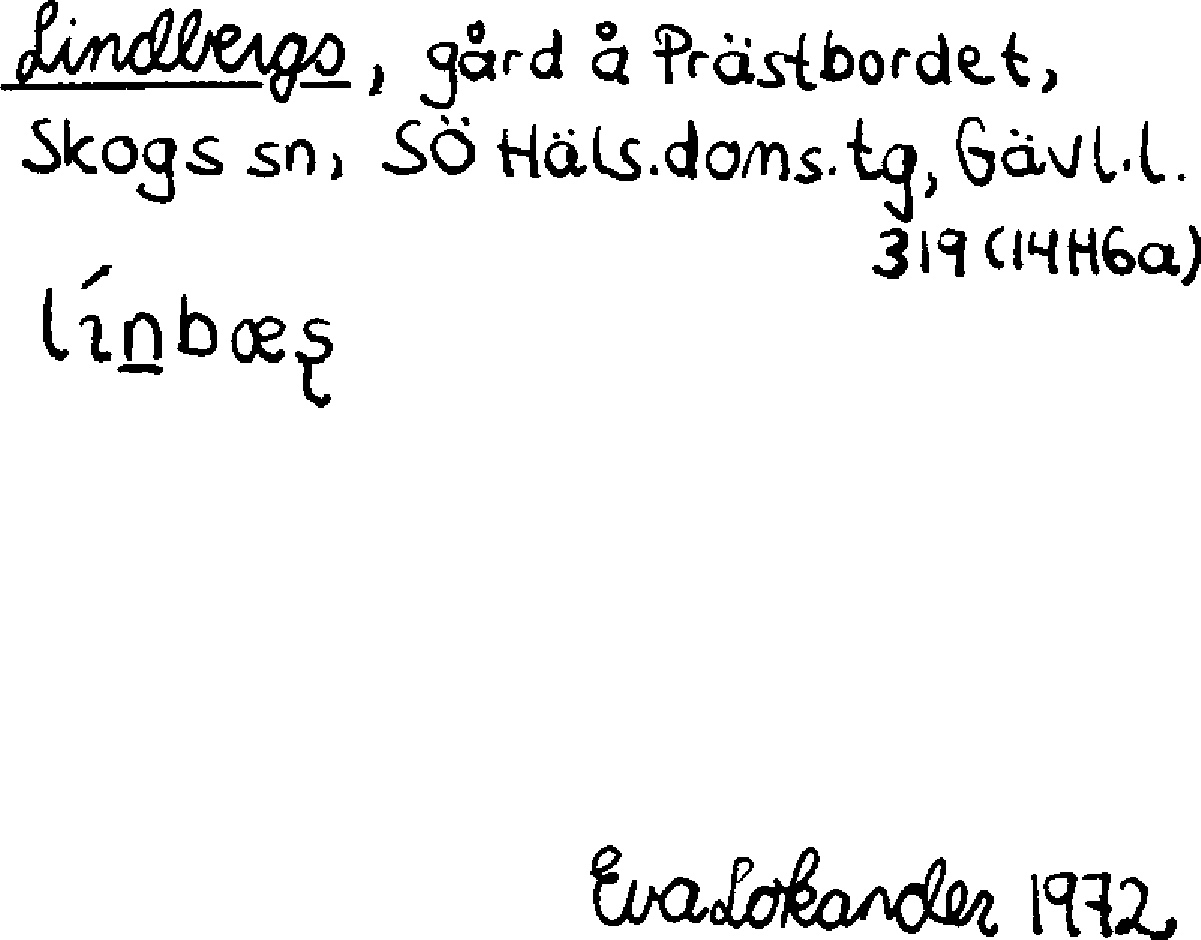 Lindbergs, gård å Prästbordet,
Skogs sn, SÖ Häls.doms.tg, Gävl.l.
319 (14H6a)
lín̲bæʂ
Eva Lokander 1972